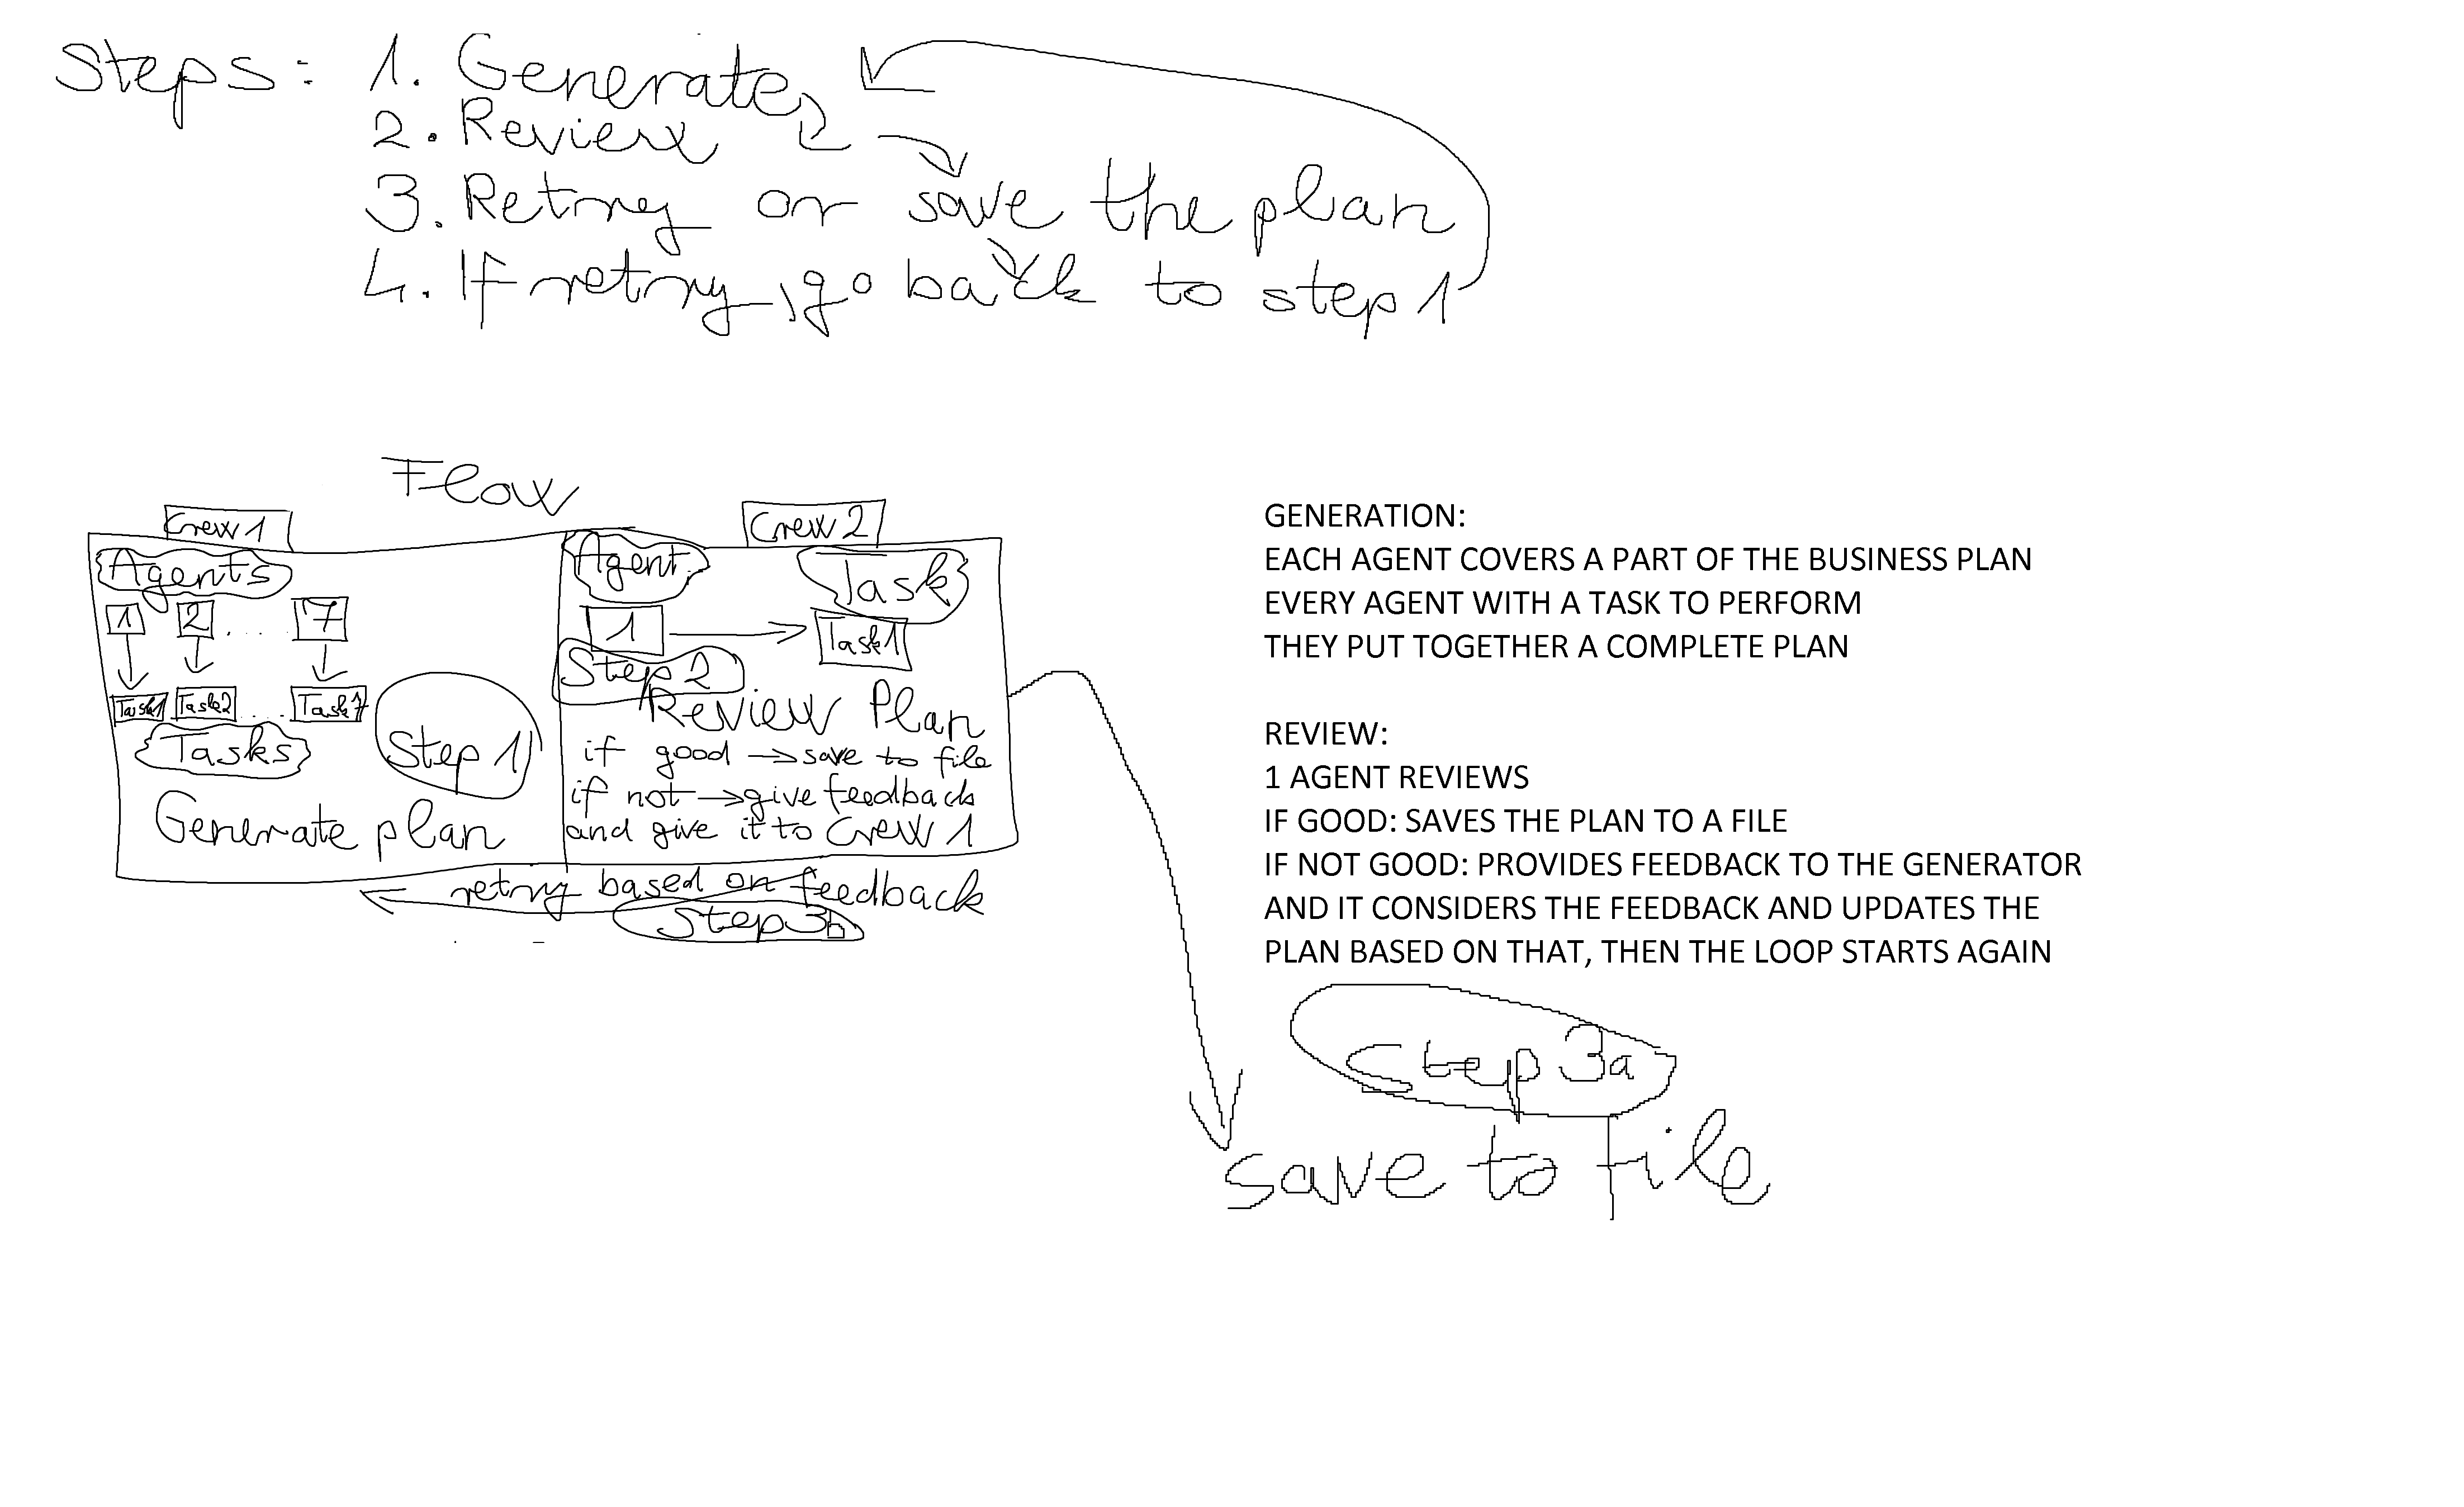 Steps: 1. Generate
2. Review
3. Retry or save the plan
4. If retry, go back to step 1
Flow
Crew 1
Agents
1 2 .... 7
Task1 Task2 .... Task7
Tasks
Step 1
Generate plan
Crew 2
Agent
Task
1
Task1
Step 2
Review Plan
if good → save to file
if not → give feedback
and give it to Crew 1
retry based on feedback
Step 3b
GENERATION:
EACH AGENT COVERS A PART OF THE BUSINESS PLAN
EVERY AGENT WITH A TASK TO PERFORM
THEY PUT TOGETHER A COMPLETE PLAN
REVIEW:
1 AGENT REVIEWS
IF GOOD: SAVES THE PLAN TO A FILE
IF NOT GOOD: PROVIDES FEEDBACK TO THE GENERATOR
AND IT CONSIDERS THE FEEDBACK AND UPDATES THE
PLAN BASED ON THAT, THEN THE LOOP STARTS AGAIN
Step 3a
save to file